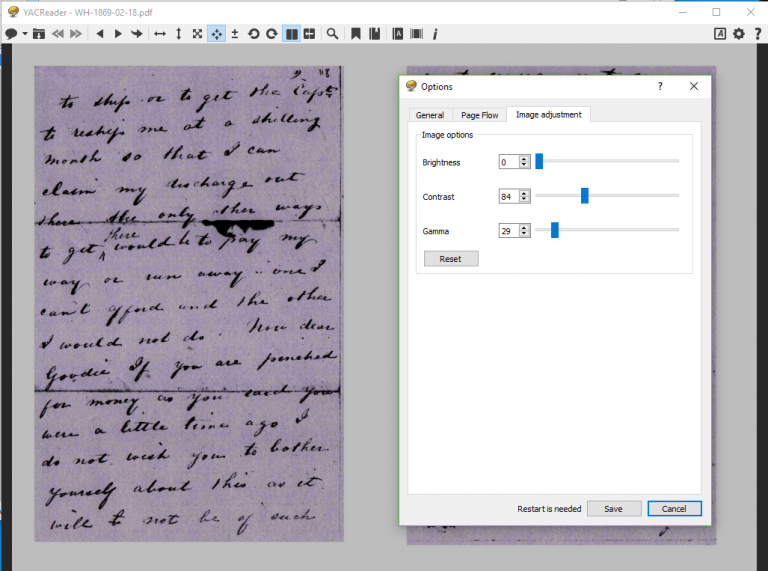 YACReader - WH-1869-02-18.pdf
2, 118
to ships or to get the Capt.
to reships me at a shilling
month so that I can
claim my discharge out
there the only other ways
there
to get ^ would be to pay my
way or run away .. one I
can't afford and the other
I would not do. Now dear
Goodie If you are pinched
for money as you said you
were a little time ago I
do not wish you to bother
yourself about this as it
will t not be of such
Options
?
General
Page Flow
Image adjustment
Image options
Brightness
0
Contrast
84
Gamma
29
Reset
Restart is needed
Save
Cancel